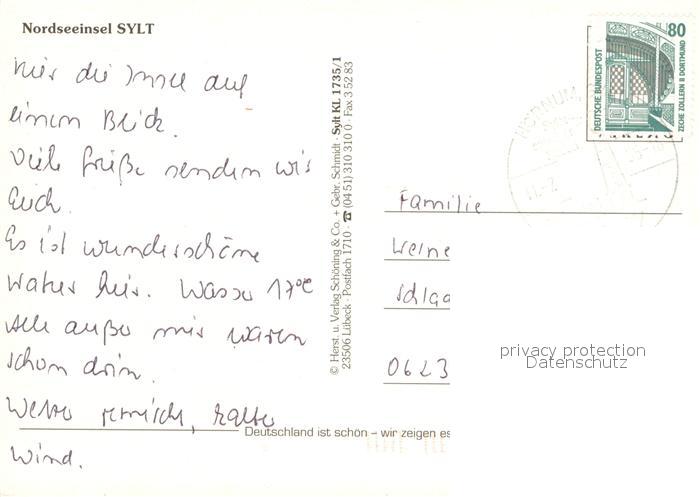 Nordseeinsel SYLT
Hier die Insel auf
einen Blick.
Viele Grüße senden wir
Euch.
Es ist wunderschöne
hier. Wasser 17°C
alle außer mir waren
schon drin.
Wetter, kalter
Wind.
© Herst. u. Verlag Schöning & Co. + Gebr. Schmidt · Sylt KL 1735/1
23506 Lübeck · Postfach 1710 · ☎ (04 51) 310 310 0 · Fax 3 52 83
80
DEUTSCHE BUNDESPOST
ZECHE ZOLLERN II DORTMUND
HÖRNUM
Familie
Werne
Schlaa
0623
privacy protection
Datenschutz
Deutschland ist schön – wir zeigen es